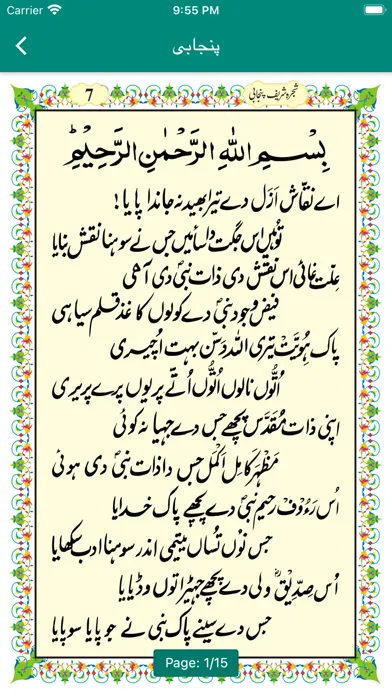 Carrier 9:55 PM
پنجابی
7 شجرہ شریف پنجابی
بِسْمِ اللهِ الرَّحْمٰنِ الرَّحِيْمِ
اے نقّاش اَزَل دے تیرا بھید نہ جاندا پایا!
توُنہیں اس جگت دا سائیں جس نے سوہنا نقش بنایا
عِلّتِ غائی اس نقش دی ذات نبیؐ دی آہی
فیض وجود نبیؐ دے کولوں کاغذ قلم سیاہی
پاک ہُوِیَّتْ تیری اللہ دَسّن بہت اُچیری
اُتُّوں نالوں اُتُّوں اُتّے پریوں پرے پریری
اپنی ذات مُقَدَّس پچھے جس دے جہیا نہ کوئی
مَظْہَر کامِل اَکْمَل جس دا ذات نبیؐ دی ہوئی
اُس رَءُوْفْ رحیم نبیؐ دے پچھے پاک خدایا
جس نوُں تُساں یتیمی اندر سوہنا ادب سکھایا
اُس صِدِّیْقؓ ولی دے پچھے جہڑا توں وڈیایا
جس دے سینے پاک نبی نے جو پایا سو پایا
Page: 1/15